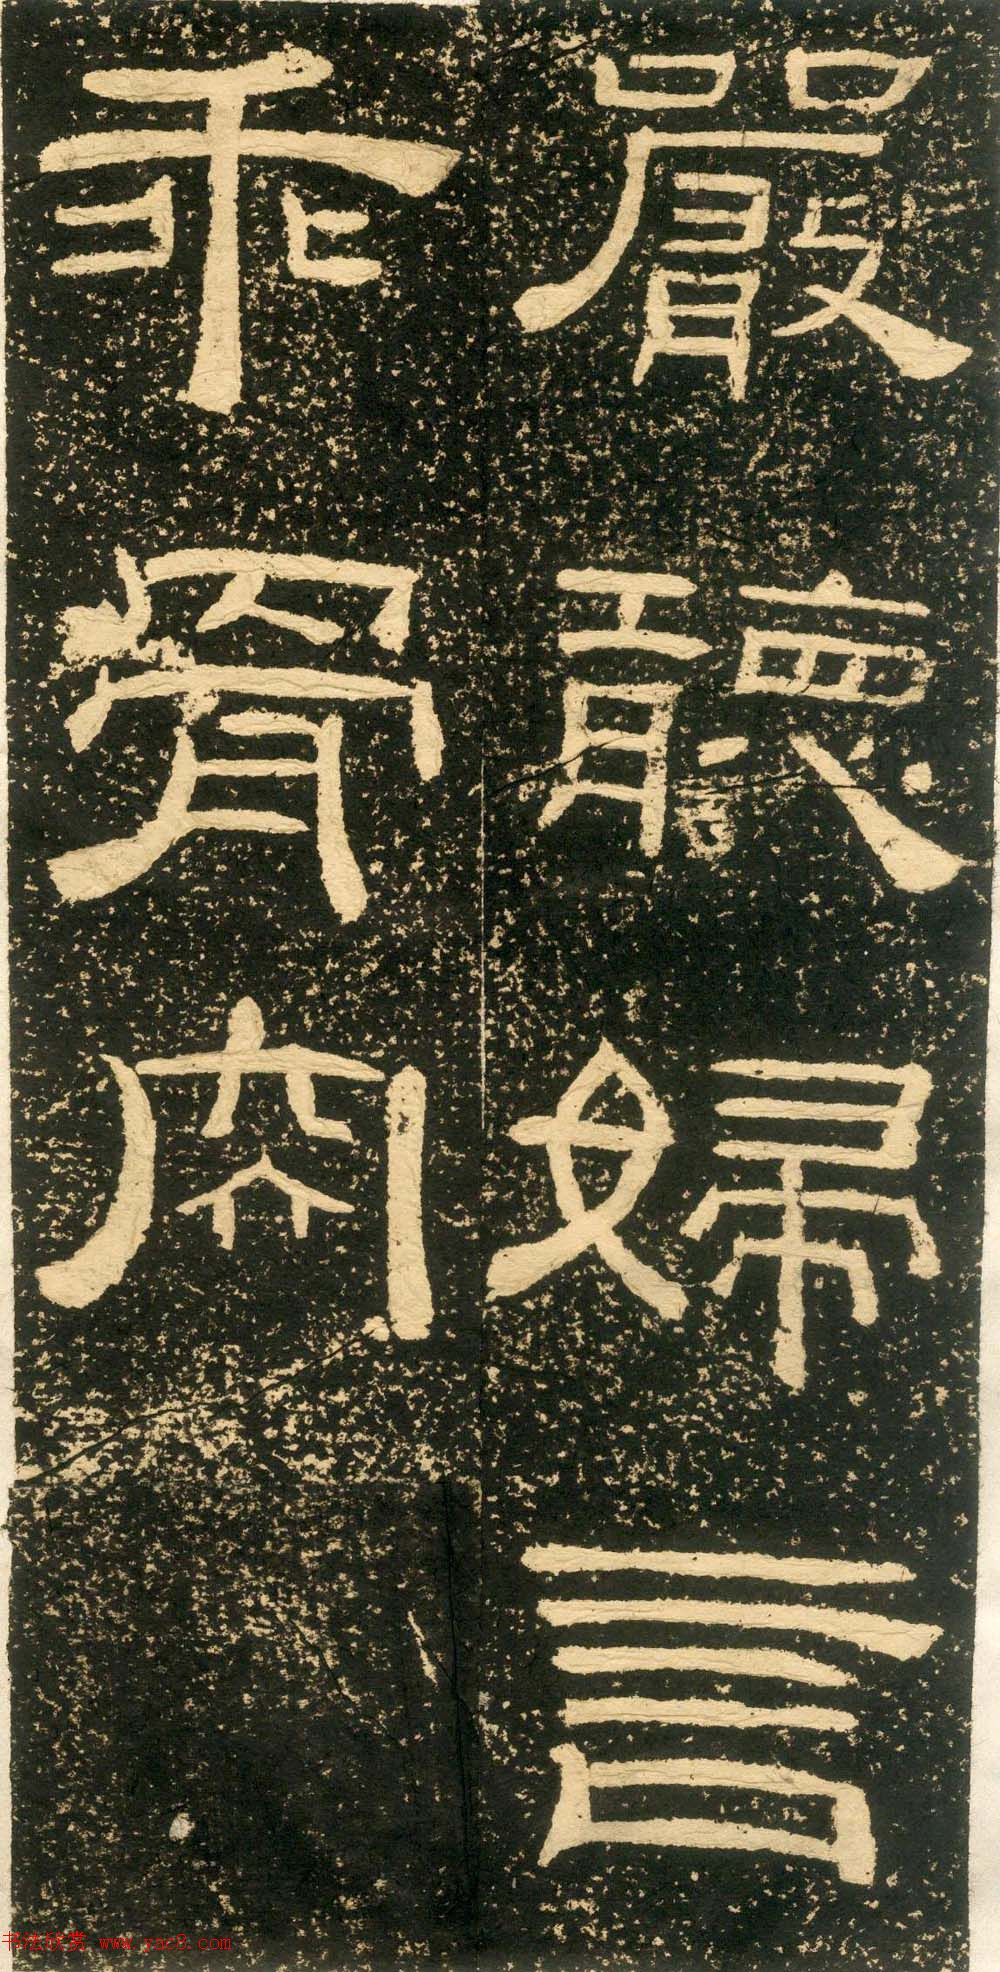 嚴聽婦言
乖骨肉
书法欣赏 www.yac8.com